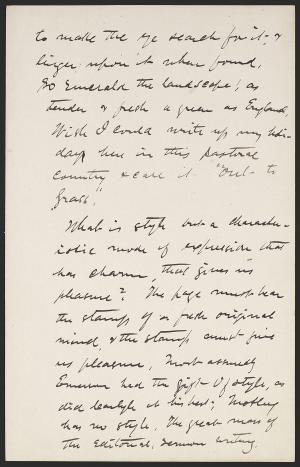 to make the eye search for it, &
linger upon it when found.
So Emerald the landscape, as
tender & fresh a green as England.
Wish I could write up my holi-
days here in this pastoral
Country & call it "Out to
Grass."
What is style but a character-
istic mode of expression that
has charm, that gives us
pleasure? The page must bear
the stamp of a fresh original
mind, & the stamp must give
us pleasure. Most assuredly
Emerson had the gift of style, as
did Carlyle at his best; Motley
has no style. The great mass of
the Editorial, sermon writing.